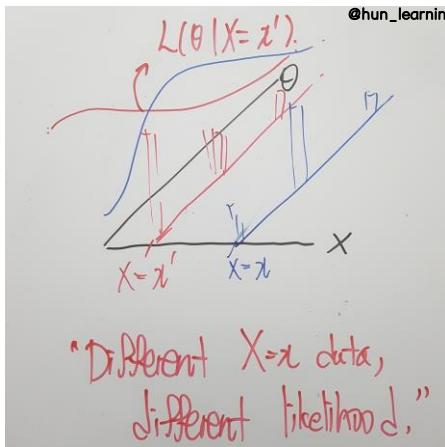 @hun_learnin
L(θ|X=x').
θ
X
X=x'
X=x
"Different X=x data,
different likelihood."